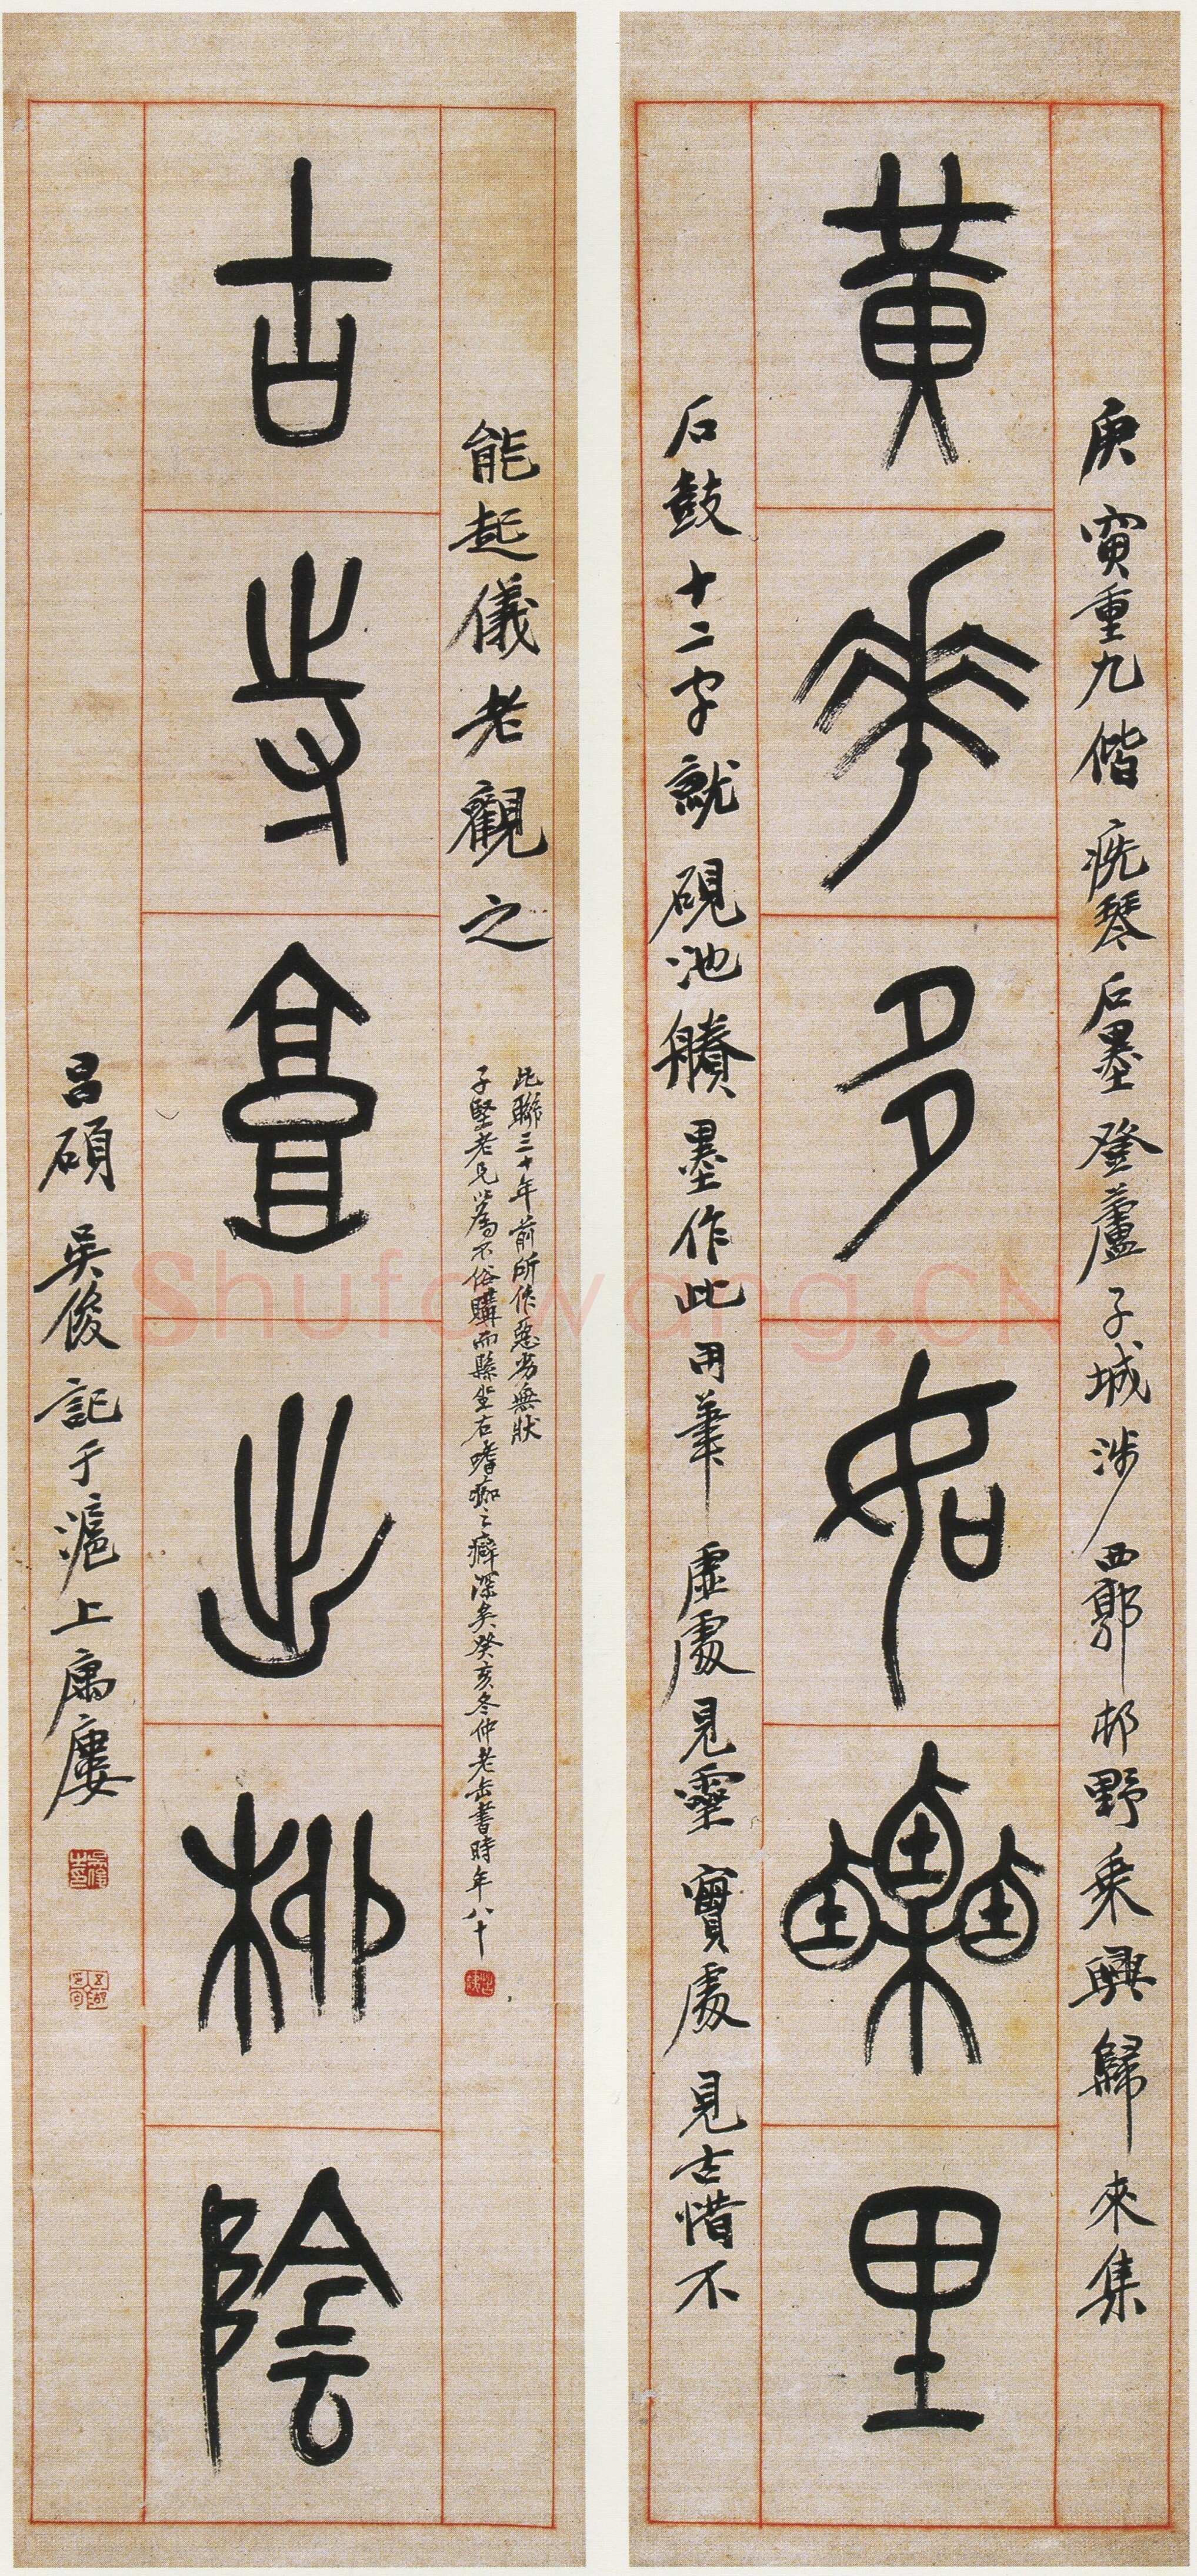 庚寅重九偕疣琴石墨登蘆子城涉西郭邨野乘興歸來集
黃華多如栗里
石鼓十二字就硯池賸墨作此用筆虛處見靈實處見古惜不
能起儀老觀之
此聯三十年前所作惡劣無狀
子堅老兄以爲不俗購而縣坐右嗜痂之癖深矣癸亥冬仲老缶書時年八十
古寺高出柳陰
昌碩吳俊記于滬上寓廔
Shufawang.CN